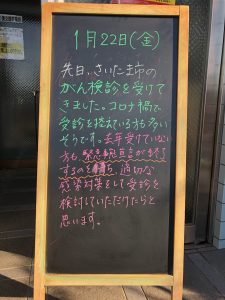 1月22日(金)
先日、さいたま市の
がん検診を受けて
きました。コロナ禍で
受診を控えている方も多い
そうです。去年受けていない
方も、緊急事態宣言が終了
するのを待ち、適切な
感染対策をして受診を
検討していただけたらと
思います。